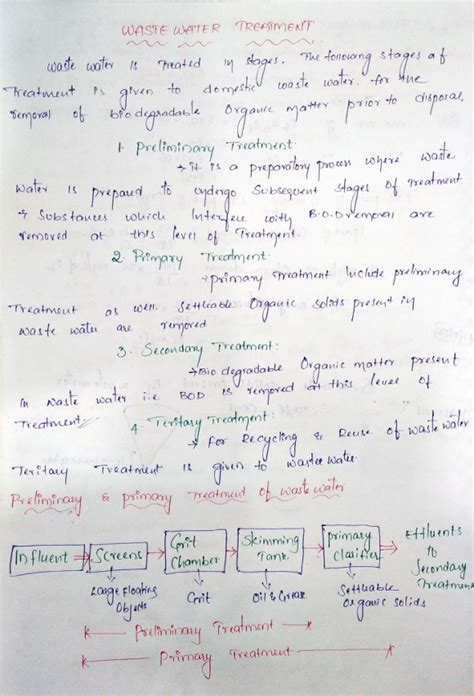 WASTE WATER TREATMENT
Waste water is Treated in stages. The following stages of
Treatment is given to domestic waste water. for the
removal of biodegradable Organic matter prior to disposal
1. Preliminary Treatment:
→ it is a preparatory process where waste
water is prepared to undergo Subsequent stages of Treatment
& Substances which Interfere with B.O.D removal are
removed at this level of Treatment.
2. Primary Treatment:
→ primary Treatment Include preliminary
Treatment as well. Settleable Organic solids present in
waste water are removed
3. Secondary Treatment:
→ Bio degradable Organic matter present
in waste water i.e BOD is removed at this level of
Treatment.
4. Teritary Treatment:
→ for Recycling & Reuse of waste water
Teritary Treatment is given to waste water.
Preliminary & primary Treatment of waste water
Influent → Screens → Grit Chamber → Skimming Tank → primary Clarifier → Effluents to Secondary Treatment
Large Floating Objects
Grit
Oil & Grease
Settleable Organic solids
Preliminary Treatment
Primary Treatment